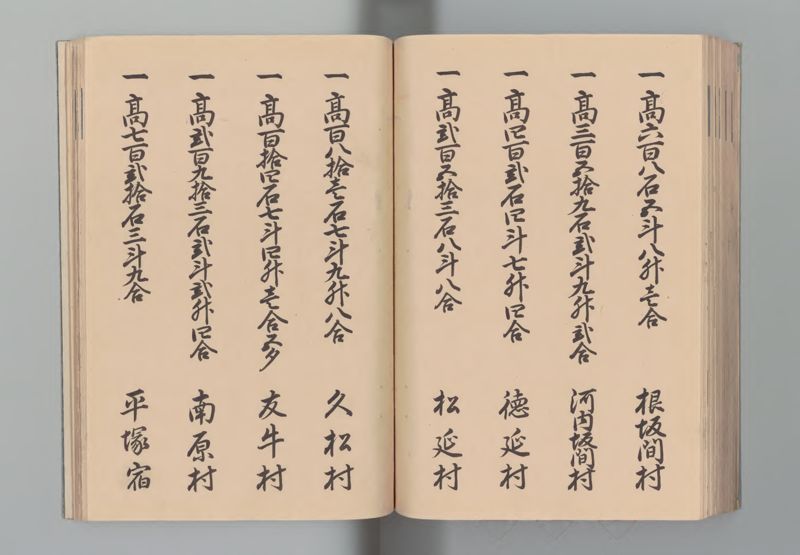 一髙六百八石五斗八升壱合 根坂間村
一髙三百五拾九石弐斗九升弐合 河内坂間村
一髙四百弐石四斗七升四合 徳延村
一髙弐百五拾三石八斗八合 松延村
一髙百八拾壱石七斗九升八合 久松村
一髙百拾四石七斗四升壱合五夕 友牛村
一髙弐百九拾三石弐斗弐升四合 南原村
一髙七百弐拾石三斗九合 平塚宿